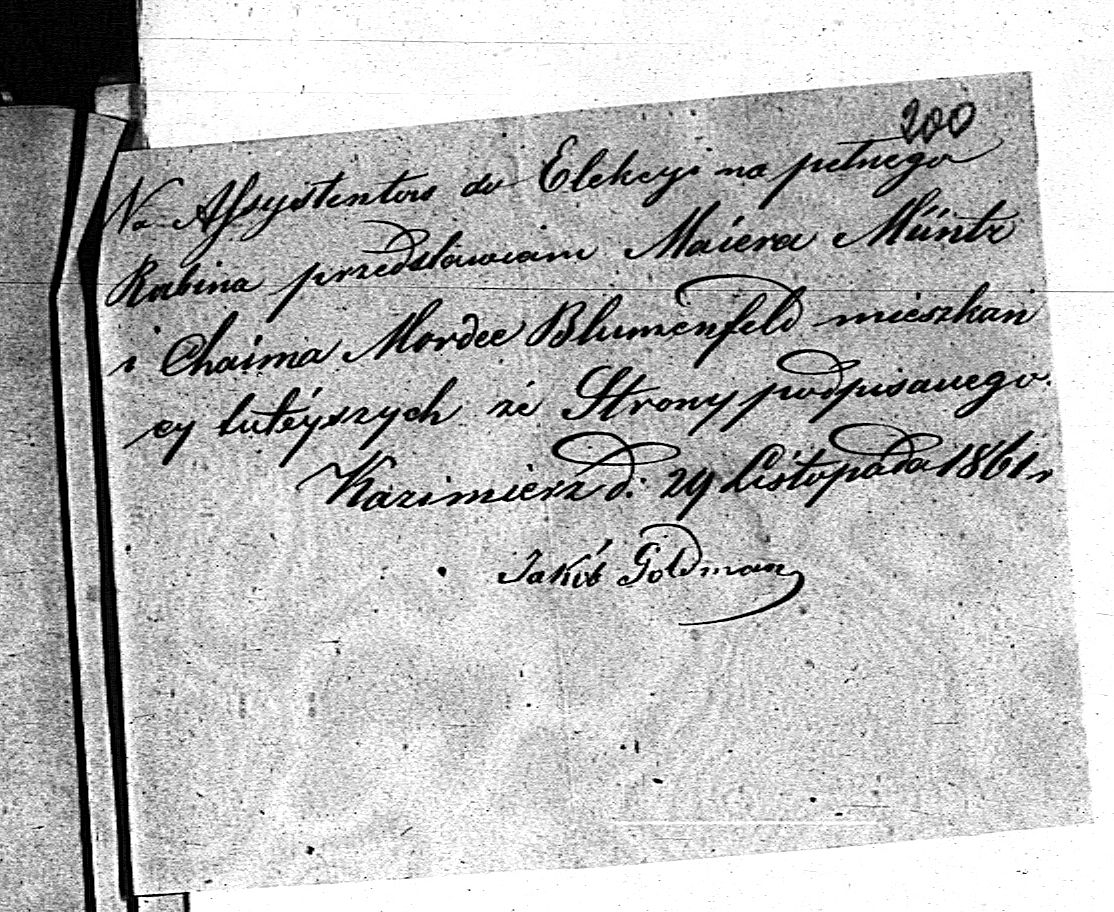 200
Na Assystentów do Elekcyi na pełnego
Rabina przedstawiam Maiera Müntz
i Chaima Mordce Blumenfeld mieszkań
cy tutéyszych ze Strony podpisanego.
Kazimierz d: 29 Listopada 1861 r
Jakób Goldman